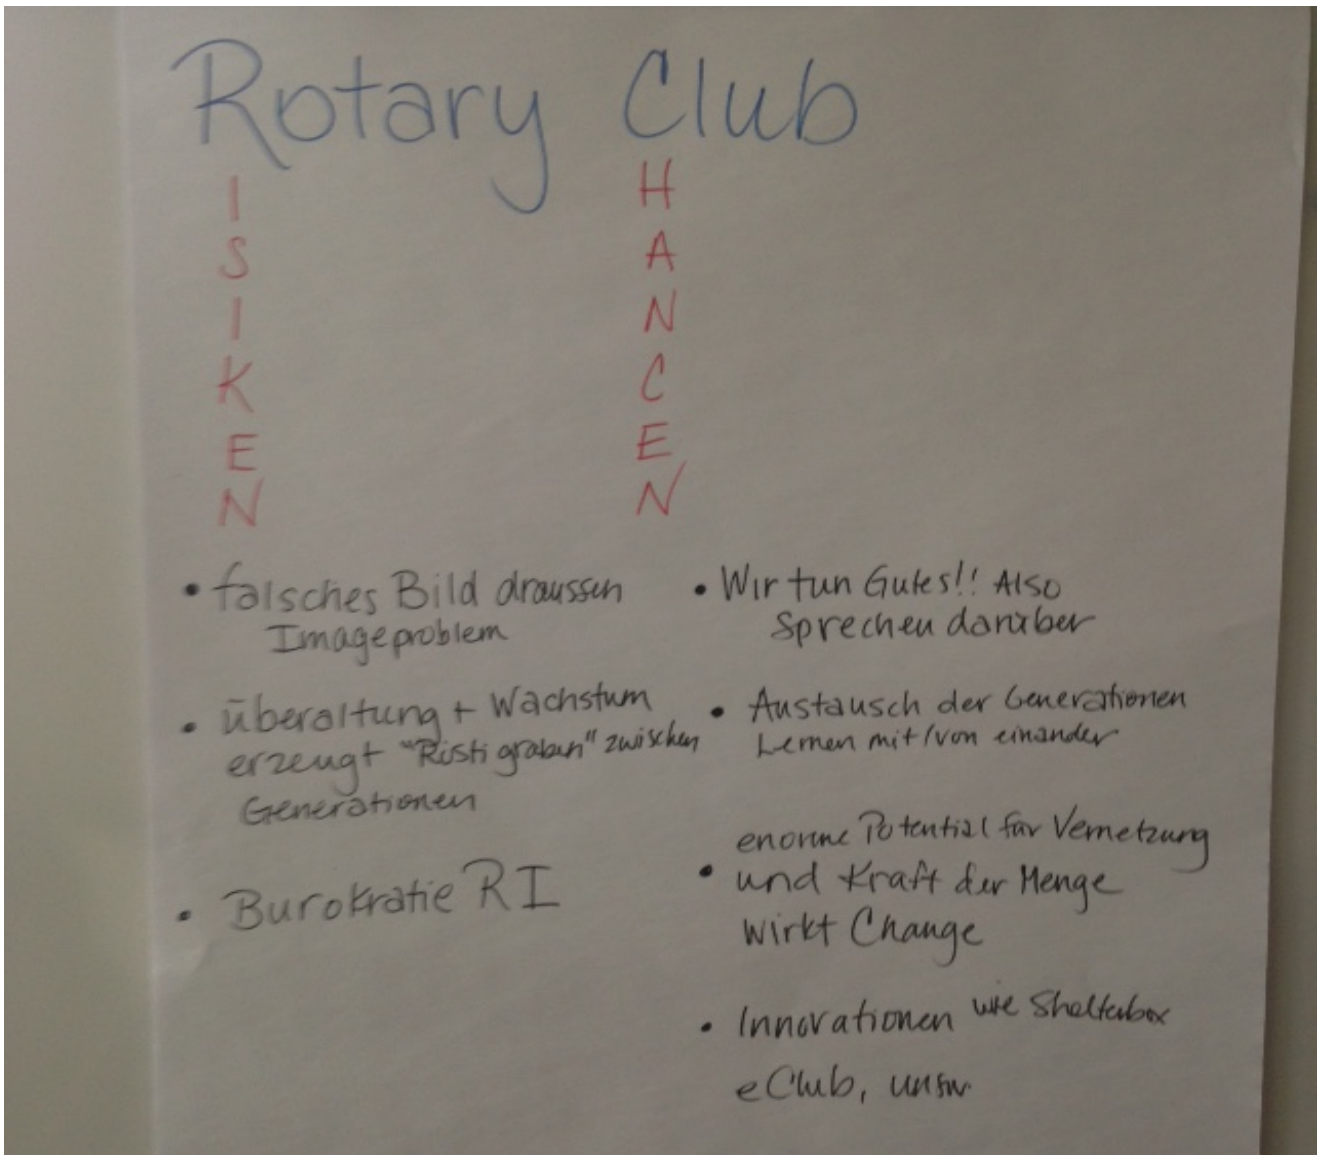 Rotary Club
I
S
I
K
E
N
H
A
N
C
E
N
• falsches Bild draussen
Imageproblem
• überaltung + Wachstum
erzeugt "Rösti graben" zwischen
Generationen
• Burokratie RI
• Wir tun Gutes!! Also
Sprechen darüber
• Austausch der Generationen
Lernen mit/von einander
enorme Potential für Vernetzung
• und Kraft der Menge
wirkt Change
• Innovationen wie Shelterbox
eClub, unsw.